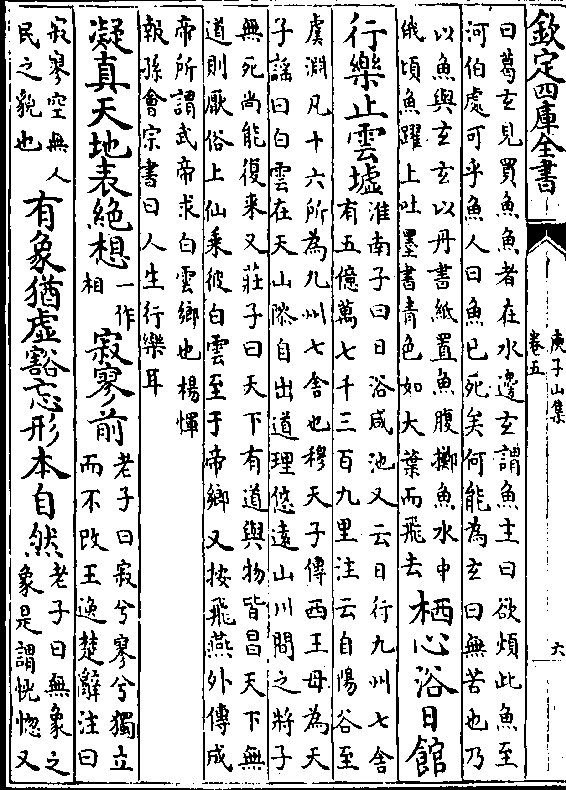 欽定四庫全書
庾子山集
卷五
六
曰葛玄見買魚魚者在水邊玄謂魚主曰欲煩此魚至
河伯處可乎魚人曰魚已死矣何能為玄曰無苦也乃
以魚與玄玄以丹書紙置魚腹擲魚水中
俄頃魚躍上吐墨書青色如大葉而飛去
栖心浴日館
行樂止雲墟
淮南子曰日浴咸池又云日行九州七舍
有五億萬七千三百九里注云自陽谷至
虞淵凡十六所為九州七舍也穆天子傳西王母為天
子謡曰白雲在天山𨻶自出道理悠遠山川間之將子
無死尚能復来又莊子曰天下有道與物皆昌天下無
道則厭俗上仙乘彼白雲至于帝鄉又按飛燕外傳成
帝所謂武帝求白雲鄉也楊惲
報孫會宗書曰人生行樂耳
凝真天地表絶想
一作
相
寂寥前
老子曰寂兮寥兮獨立
而不改王逸楚辭注曰
寂寥空無人
民之貌也
有象猶虛豁忘形本自然
老子曰無象之
象是謂恍惚又